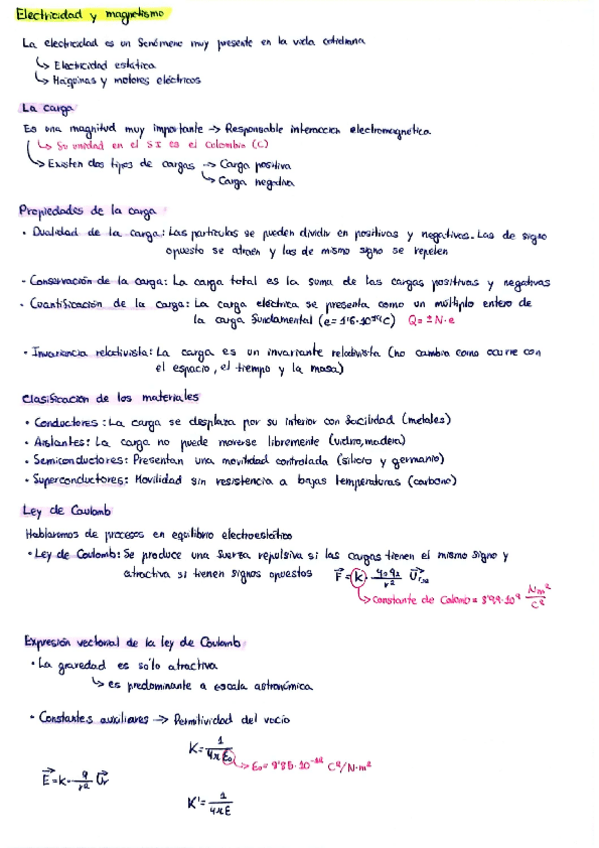 Electricidad y magnetismo
La electricidad es un fenómeno muy presente en la vida cotidiana
↳ Electricidad estática
↳ Máquinas y motores eléctricos
La carga
Es una magnitud muy importante → Responsable interaccion electromagnetica
↳ Su unidad en el SI es el Colombio (C)
↳ Existen dos tipos de cargas → Carga positiva
↳ Carga negativa
Propiedades de la carga
• Dualidad de la carga: Las particulas se pueden dividir en positivas y negativas. Las de signo
opuesto se atraen y las de mismo signo se repelen
- Conservación de la carga: La carga total es la suma de las cargas positivas y negativas
• Cuantificación de la carga: La carga eléctrica se presenta como un múltiplo entero de
la carga fundamental (e= 1'6·10⁻¹⁹C) Q= ±N·e
• Invariancia relativista: La carga es un invariante relativista (no cambia como ocurre con
el espacio, el tiempo y la masa)
Clasificación de los materiales
• Conductores: La carga se desplaza por su interior con facilidad (metales)
• Aislantes: La carga no puede moverse libremente (vidrio, madera)
• Semiconductores: Presentan una movilidad controlada (silicio y germanio)
• Superconductores: Movilidad sin resistencia a bajas temperaturas (carbono)
Ley de Coulomb
Hablaremos de procesos en equilibrio electroestático
• Ley de Coulomb: Se produce una fuerza repulsiva si las cargas tienen el mismo signo y
atractiva si tienen signos opuestos F⃗=k·
↳ Constante de Colomb = 8'99·10⁹ Nm²/C²
Expresión vectorial de la ley de Coulomb
• La gravedad es sólo atractiva
↳ es predominante a escala astronómica
• Constantes auxiliares → Permitividad del vacio
K= 1/4πε₀
↳ ε₀= 8'85·10⁻¹² C²/N·m²
E⃗=k·q/r² U⃗r
K'= 1/4πε